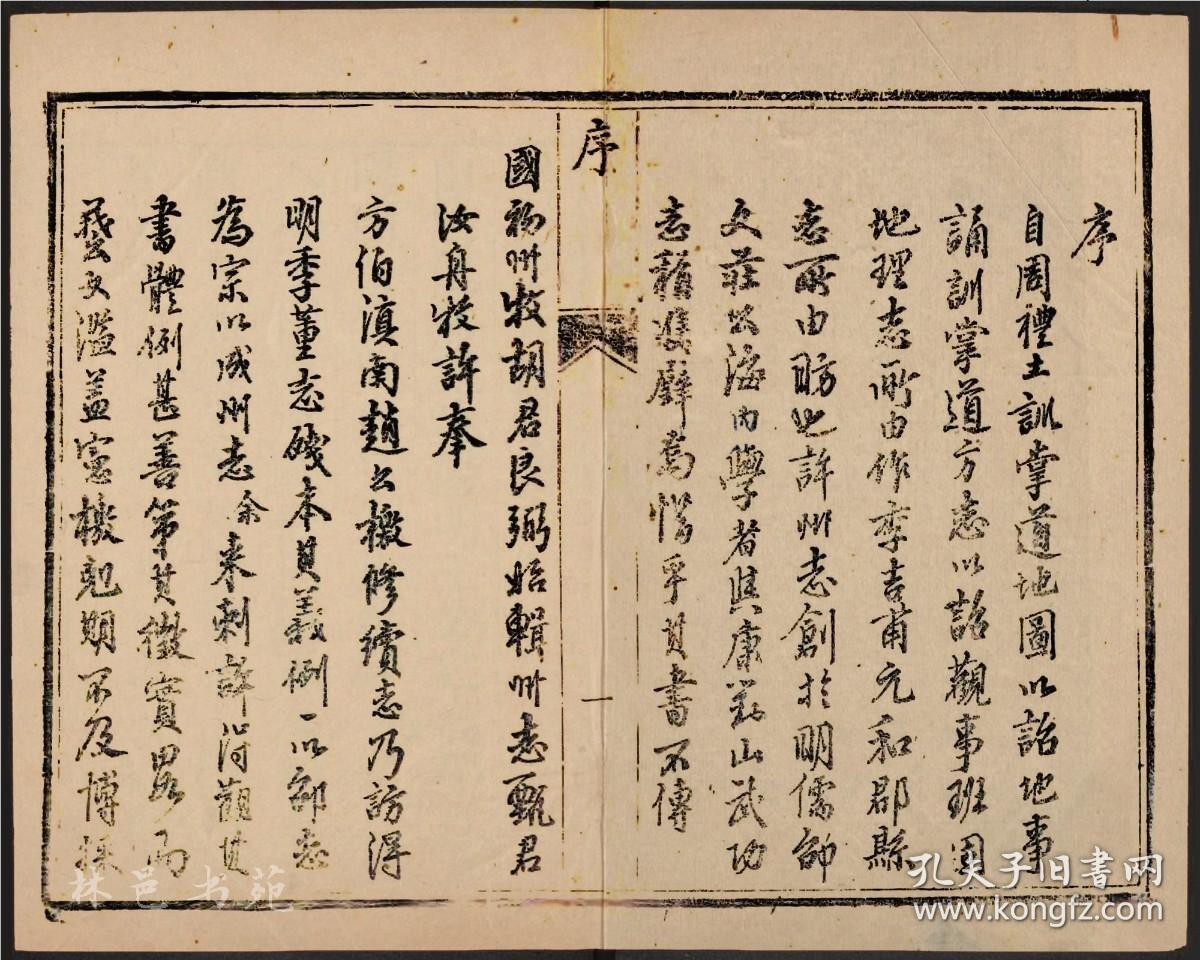 序
自周禮土訓掌道地圖以詔地事
誦訓掌道方志以詔觀事班固
地理志所由作李吉甫元和郡縣
志所由昉也許州志創於明儒邵
文莊公海內學者與康對山武功
志稱雙璧焉惜乎其書不傳
序
一
國初州牧胡君良弼始輯州志甄君
汝舟牧許奉
方伯滇南趙公檄修續志乃訪得
明季董志殘本其義例一以邵志
為宗以成州志余來刺許得觀其
書體例甚善第其徵實畧而
藝文濫蓋憲檄剋期不及博採
林邑书苑
孔夫子旧书网
www.kongfz.com